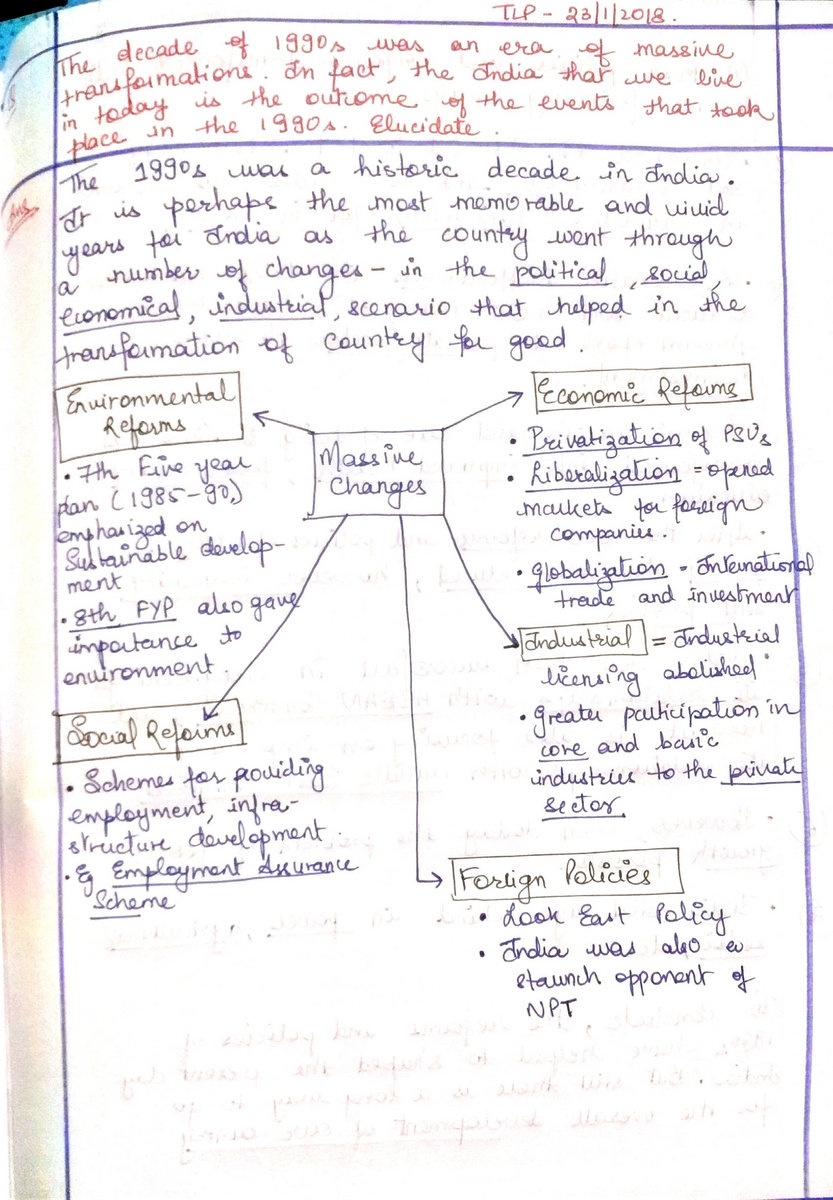 TLP - 23/1/2018.
The decade of 1990s was an era of massive
transformations. In fact, the India that we live
in today is the outcome of the events that took
place in the 1990s. Elucidate.
Ans
The 1990s was a historic decade in India.
It is perhaps the most memorable and vivid
years for India as the country went through
a number of changes - in the political, social,
economical, industrial, scenario that helped in the
transformation of country for good.
Environmental
Reforms
• 7th Five year
plan (1985-90,)
emphasized on
Sustainable develop-
ment
• 8th FYP also gave
importance to
environment.
Massive
Changes
Economic Reforms
• Privatization of PSUs
• Liberalization = opened
markets for foreign
companies.
• Globalization = International
trade and investment
Industrial = Industrial
licensing abolished
• Greater participation in
core and basic
industries to the private
sector
Social Reforms
• Schemes for providing
employment, infra-
structure development.
• Eg Employment Assurance
Scheme
Foreign Policies
• Look East Policy
• India was also a
staunch opponent of
NPT